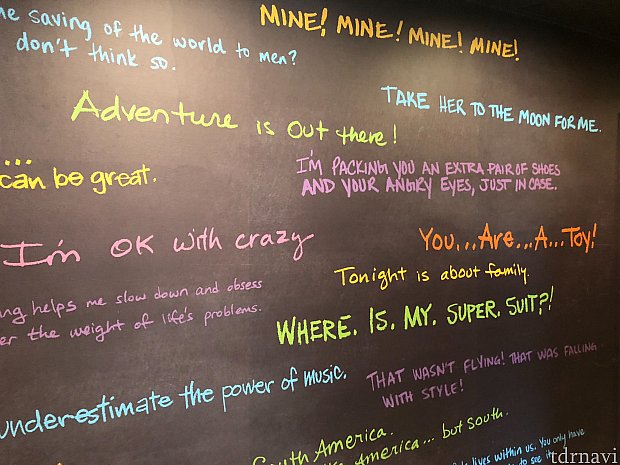 MINE! MINE! MINE! MINE!
he saving of the world to men?
don't think so.
TAKE HER TO THE MOON FOR ME.
Adventure is out there!
...
can be great.
I'M PACKING YOU AN EXTRA PAIR OF SHOES
AND YOUR ANGRY EYES, JUST IN CASE.
I'm OK with crazy
You...Are...A...Toy!
Tonight is about family.
ng helps me slow down and obsess
er the weight of life's problems.
WHERE. IS. MY. SUPER. SUIT?!
underestimate the power of music.
THAT WASN'T FLYING! THAT WAS FALLING
WITH STYLE!
South America.
America... but South.
lives within us. You only have
to see it
tdrnavi